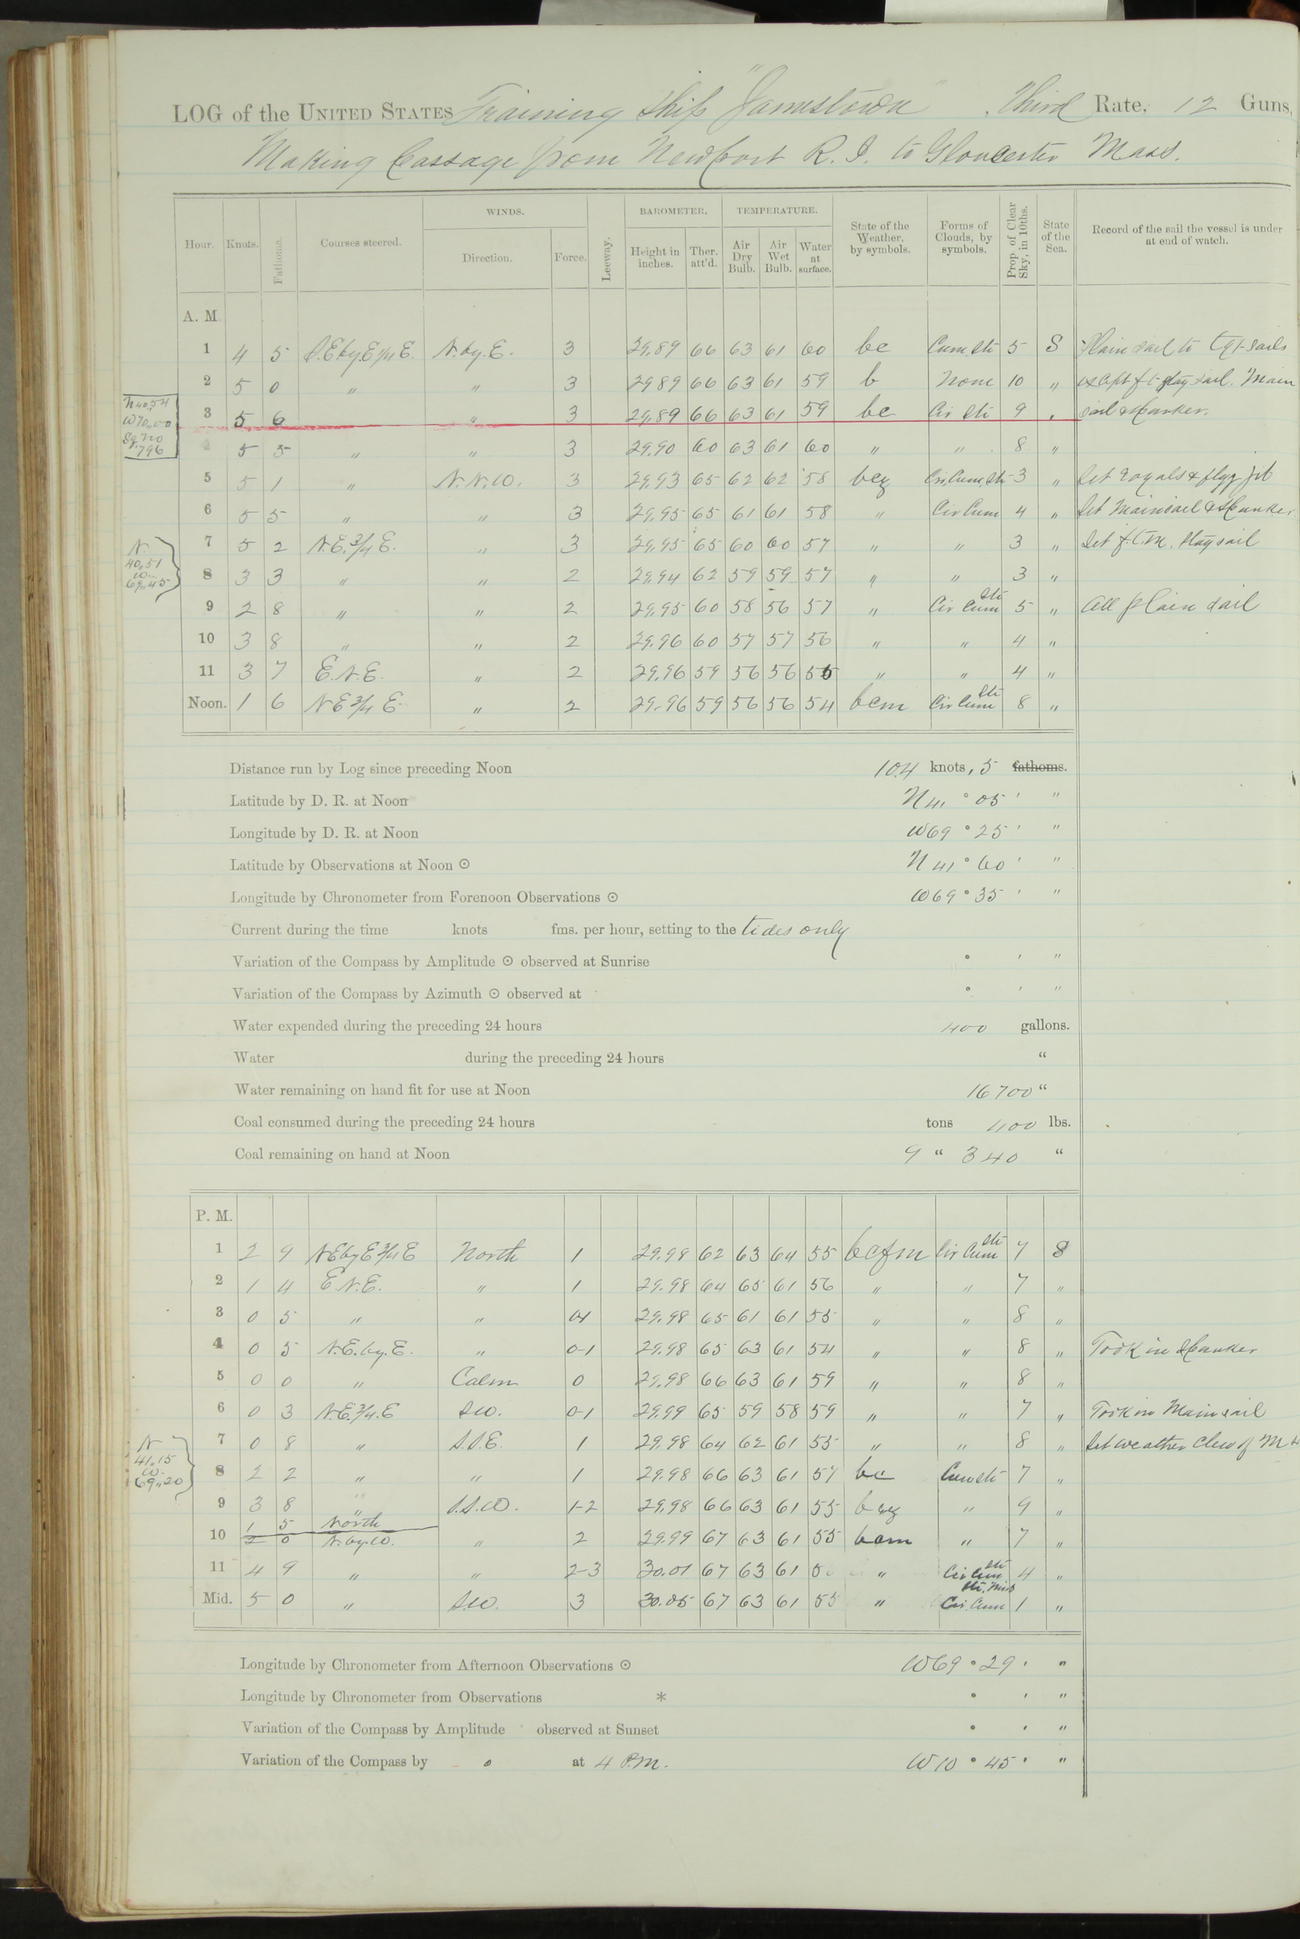 LOG of the UNITED STATES Training Ship "Jamestown", Third Rate, 12 Guns,
Making Passage from Newport R. I. to Gloucester Mass.
Hour. Knots. Fathoms. Courses steered. WINDS. Direction. Force. Leeway. BAROMETER. Height in inches. Ther. att'd. TEMPERATURE. Air Dry Bulb. Air Wet Bulb. Water at surface. State of the Weather, by symbols. Forms of Clouds, by symbols. Prop. of Clear Sky, in 10ths. State of the Sea. Record of the sail the vessel is under at end of watch.
A. M.
1 4 5 S.E by E 3/4 E. N. by. E. 3 29.89 66 63 61 60 bc Cum Str 5 S Plain sail to tg't sails
2 5 0 " " 3 29.89 66 63 61 59 b None 10 " except f-t- stay sail. Main
N 40.54
W 70.00
3 5 6 " 3 29.89 66 63 61 59 bc Cir Str 9 " sail & Spanker.
796
4 5 5 " " 3 29.90 60 63 61 60 " " 8 "
5 5 1 " N.N.W. 3 29.93 65 62 62 58 bcz Cir Cum Str 3 " Set royals & flyg jib
6 5 5 " " 3 29.95 65 61 61 58 " Cir Cum 4 " Set Mainsail & Spanker
7 5 2 N.E. 3/4 E. " 3 29.95 65 60 60 57 " " 3 " Set f.t.m. staysail
N.
40.51
W.
69.45
8 3 3 " " 2 29.94 62 59 59 57 " " 3 "
9 2 8 " " 2 29.95 60 58 56 57 " Cir Cum Str 5 " All plain sail
10 3 8 " " 2 29.96 60 57 57 56 " " 4 "
11 3 7 E.N.E. " 2 29.96 59 56 56 55 " " 4 "
Noon. 1 6 N E 3/4 E. " 2 29.96 59 56 56 54 bcm Cir Cum Str 8 "
Distance run by Log since preceding Noon 104 knots, 5 fathoms.
Latitude by D. R. at Noon N 41 ° 05 ' "
Longitude by D. R. at Noon W 69 ° 25 ' "
Latitude by Observations at Noon ⊙ N 41 ° 60 ' "
Longitude by Chronometer from Forenoon Observations ⊙ W 69 ° 35 ' "
Current during the time knots fms. per hour, setting to the tides only
Variation of the Compass by Amplitude ⊙ observed at Sunrise ° ' "
Variation of the Compass by Azimuth ⊙ observed at ° ' "
Water expended during the preceding 24 hours 400 gallons.
Water during the preceding 24 hours "
Water remaining on hand fit for use at Noon 16700 "
Coal consumed during the preceding 24 hours tons 400 lbs.
Coal remaining on hand at Noon 9 " 340 "
P. M.
1 2 9 N E by E 3/4 E North 1 29.98 62 63 64 55 bcfm Cir Cum Str 7 S
2 1 4 E N.E. " 1 29.98 64 65 61 56 " " 7 "
3 0 5 " " 0-1 29.98 65 61 61 55 " " 8 "
4 0 5 N.E. by. E. " 0-1 29.98 65 63 61 54 " " 8 " Took in Spanker
5 0 0 " Calm 0 29.98 66 63 61 59 " " 8 "
6 0 3 N.E. 3/4. E SW. 0-1 29.99 65 59 58 59 " " 7 " Took in Mainsail
7 0 8 " S.S.E. 1 29.98 64 62 61 55 " " 8 " Set weather Clew of M
N
41.15
W.
69.20
8 2 2 " " 1 29.98 66 63 61 57 bc Cum Str 7 "
9 3 8 " S.S.W. 1-2 29.98 66 63 61 55 bcz " 9 "
1 5 North
10 2 0 N. by. W. " 2 29.99 67 63 61 55 bcm " 7 "
11 4 9 " " 2-3 30.01 67 63 61 " Cir Cum Str 4 "
Mid. 5 0 " SW. 3 30.05 67 63 61 55 " Str. Nim Cir. Cum 1 "
Longitude by Chronometer from Afternoon Observations ⊙ W 69 ° 29 ' "
Longitude by Chronometer from Observations * ° ' "
Variation of the Compass by Amplitude observed at Sunset ° ' "
Variation of the Compass by at 4 P.M. W 10 ° 45 ' "